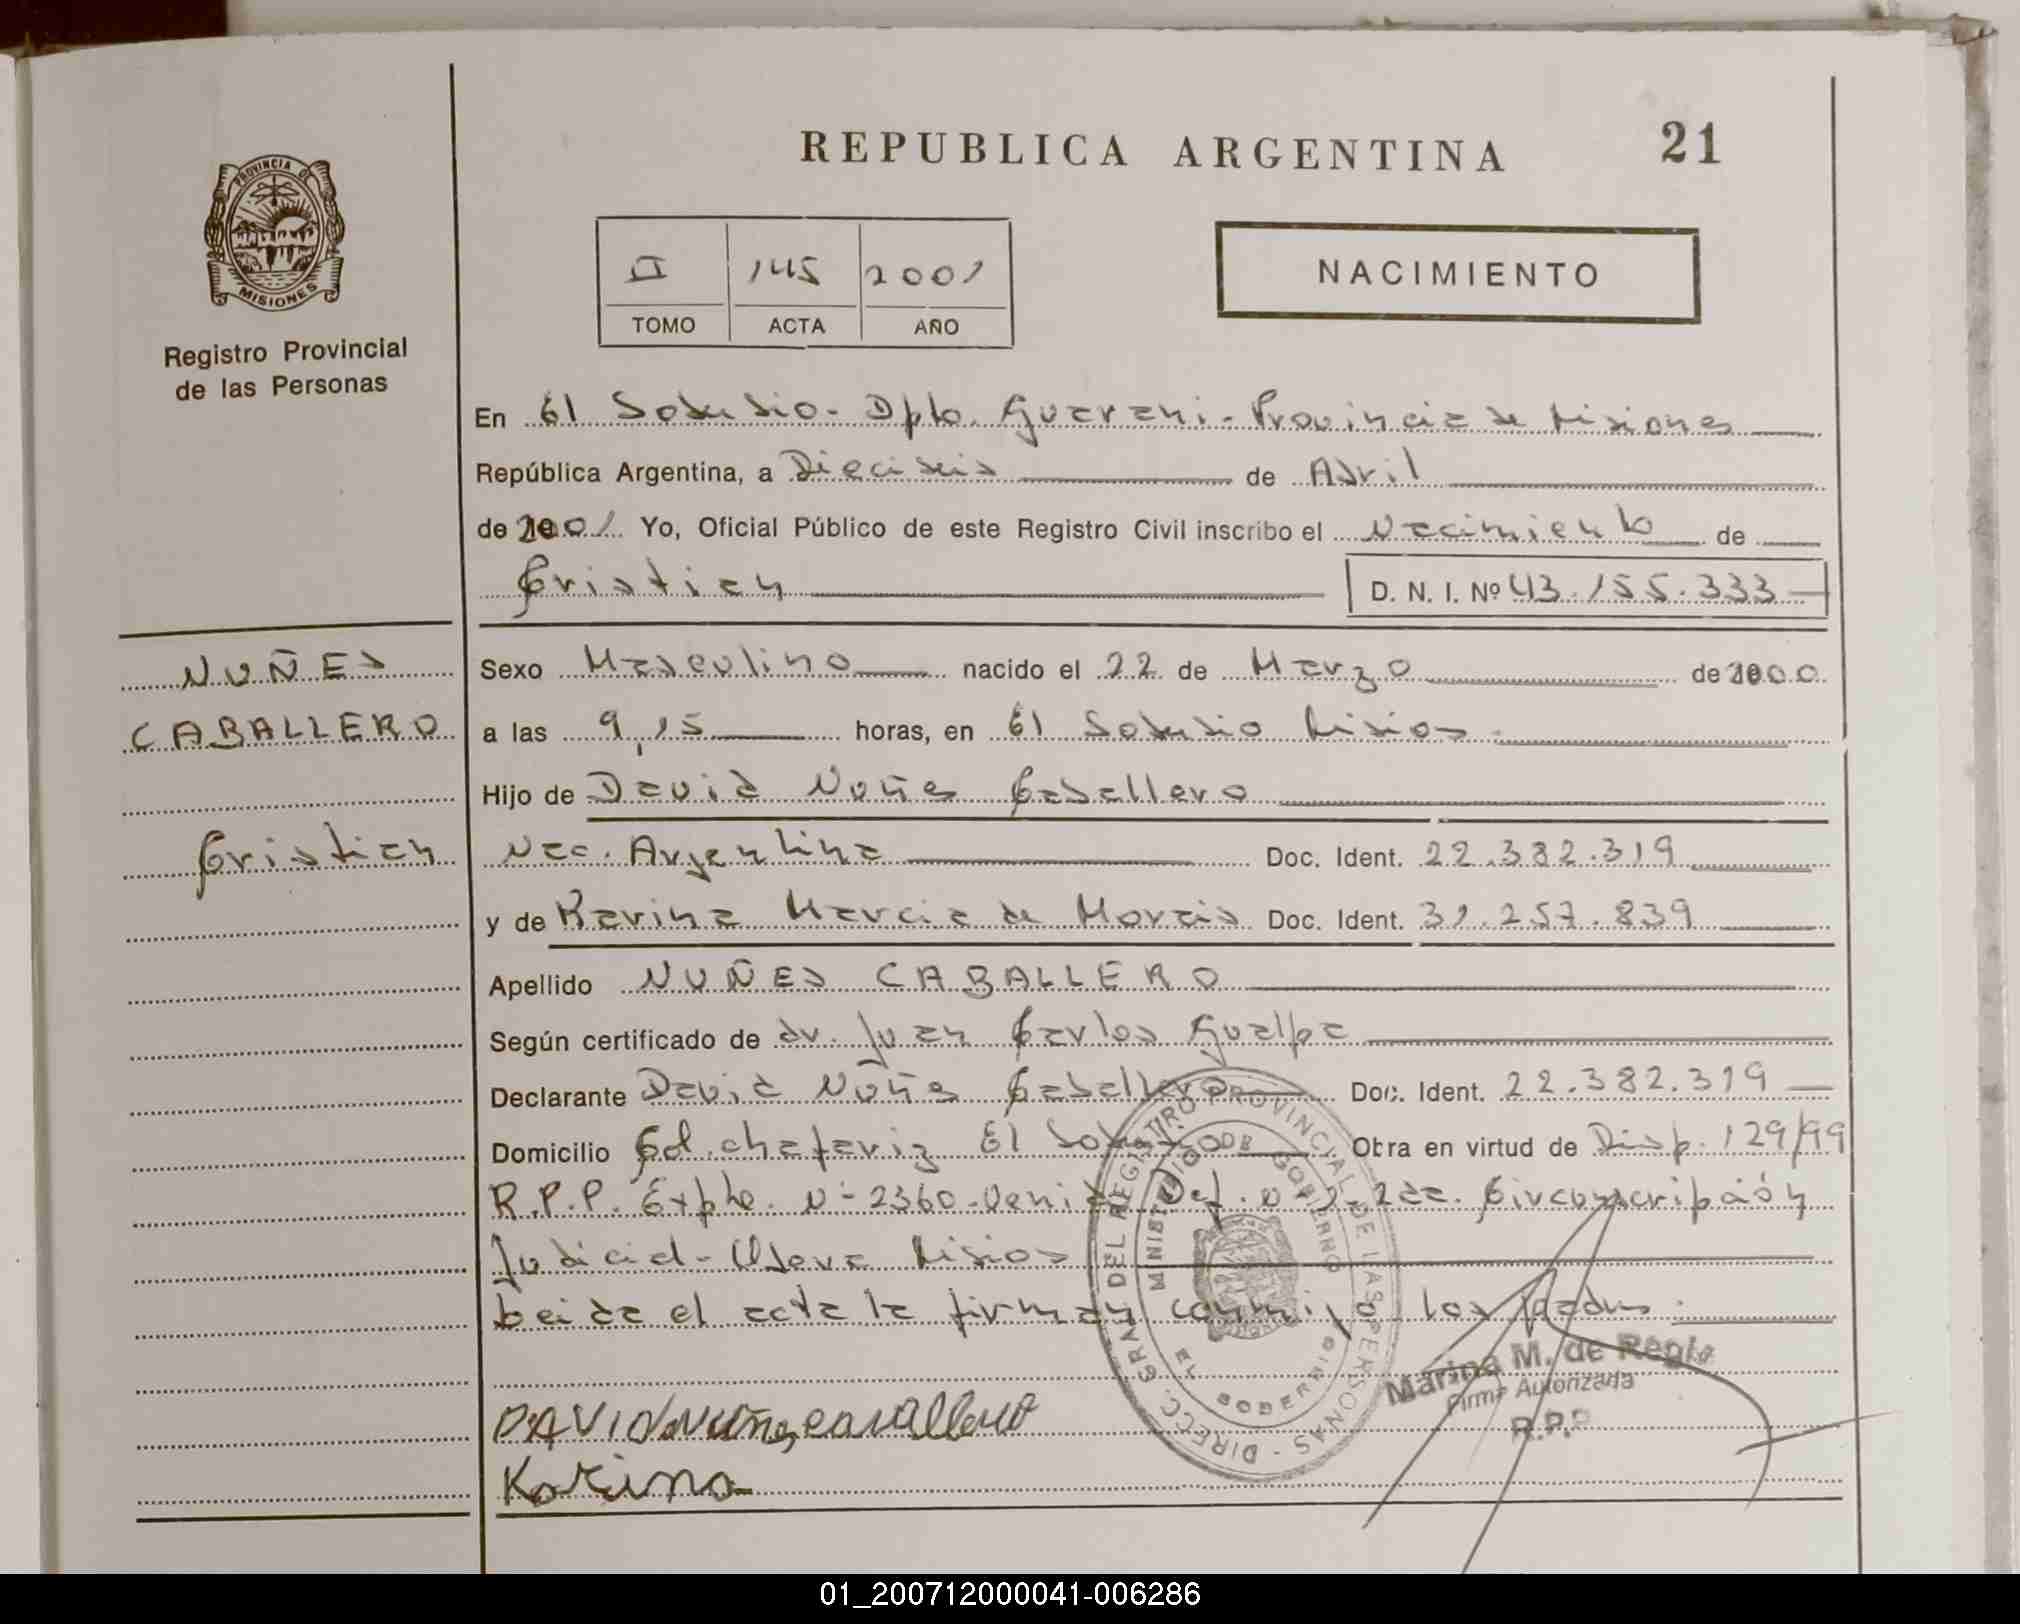 REPUBLICA ARGENTINA
21
PROVINCIA DE
MISIONES
Registro Provincial
de las Personas
II 145 2001
TOMO ACTA AÑO
NACIMIENTO
En El Soberbio - Dpto. Guarani - Provincia de Misiones
República Argentina, a Dieciseis de Abril
de 2001 Yo, Oficial Público de este Registro Civil inscribo el Nacimiento de
Cristian
D. N. I. Nº 43.155.333
NUÑES
CABALLERO
Cristian
Sexo Masculino nacido el 22 de Marzo de 2000
a las 9,15 horas, en El Soberbio Misios
Hijo de David Nuñes Caballero
Nac. Argentina Doc. Ident. 22.382.319
y de Karina Marcia de Morais Doc. Ident. 31.257.839
Apellido NUÑES CABALLERO
Según certificado de dr. Juan Carlos Gualpa
Declarante David Nuñes Caballero Doc. Ident. 22.382.319
Domicilio Col. chafariz El Soberbio Obra en virtud de Disp. 129/99
R.P.P. Expte. Nº 2360 - Def. 2da. Circunscripción
Judicial - Obera Misios
Leida el acta la firman conmigo los padres
DAVID Nuñes cavallero
Karina
DIRECC. GRAL. DEL REGISTRO PROVINCIAL DE LAS PERSONAS
MINISTERIO DE GOBIERNO
EL SOBERBIO
Marina M. de Regis
Firma Autorizada
R.P.P
01_200712000041-006286